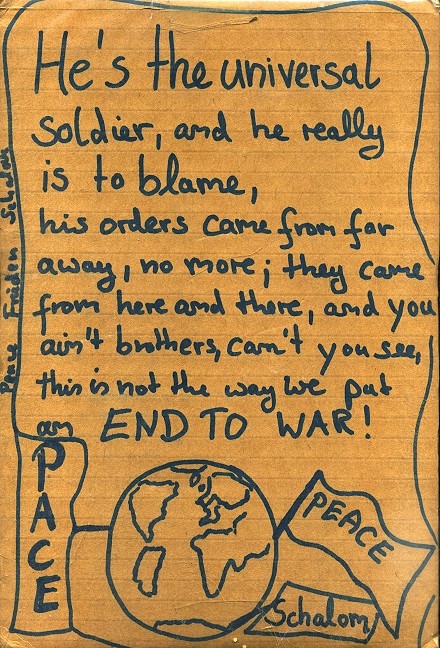 He's the universal
soldier, and he really
is to blame,
his orders came from far
away, no more; they came
from here and there, and you
ain't brothers, can't you see,
this is not the way we put
an END TO WAR!
Peace Frieden Schalom
PACE
PEACE
Schalom